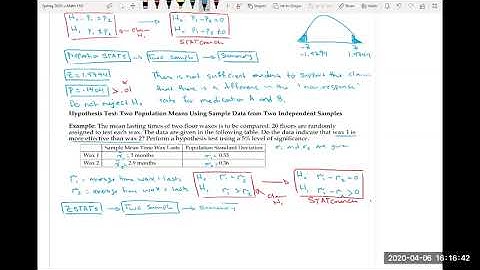 H₀ P₁ = P₂
H₁ P₁ ≠ P₂ claim
H₀ P₁ - P₂ = 0
H₁ P₁ - P₂ ≠ 0
STATCrunch
Proportion STATS → Two Sample → Summary
Z = 1.4744
P = .1404 > .01
Do not reject H₀
There is not sufficient evidence to support the claim
that there is a difference in the "non-response"
rate for medication A and B.
Hypothesis Test: Two Population Means Using Sample Data from Two Independent Samples
Example: The mean lasting times of two floor waxes is to be compared. 26 floors are randomly
assigned to test each wax. The data are given in the following table. Do the data indicate that wax 1 is
more effective than wax 2? Perform a hypothesis test using a 5% level of significance.
Sample Mean Time Wax Lasts Population Standard Deviation
Wax 1 3 months 0.33
Wax 2 2.9 months 0.36
σ₁ and σ₂ are given
μ₁ = average time wax 1 lasts
μ₂ = average time wax 2 lasts
H₀ μ₁ = μ₂
H₁ μ₁ > μ₂ claim H₁
H₀ μ₁ - μ₂ = 0
H₁ μ₁ - μ₂ > 0
STATCrunch
Z STATS → Two Sample → Summary
2020-04-06 16:16:42